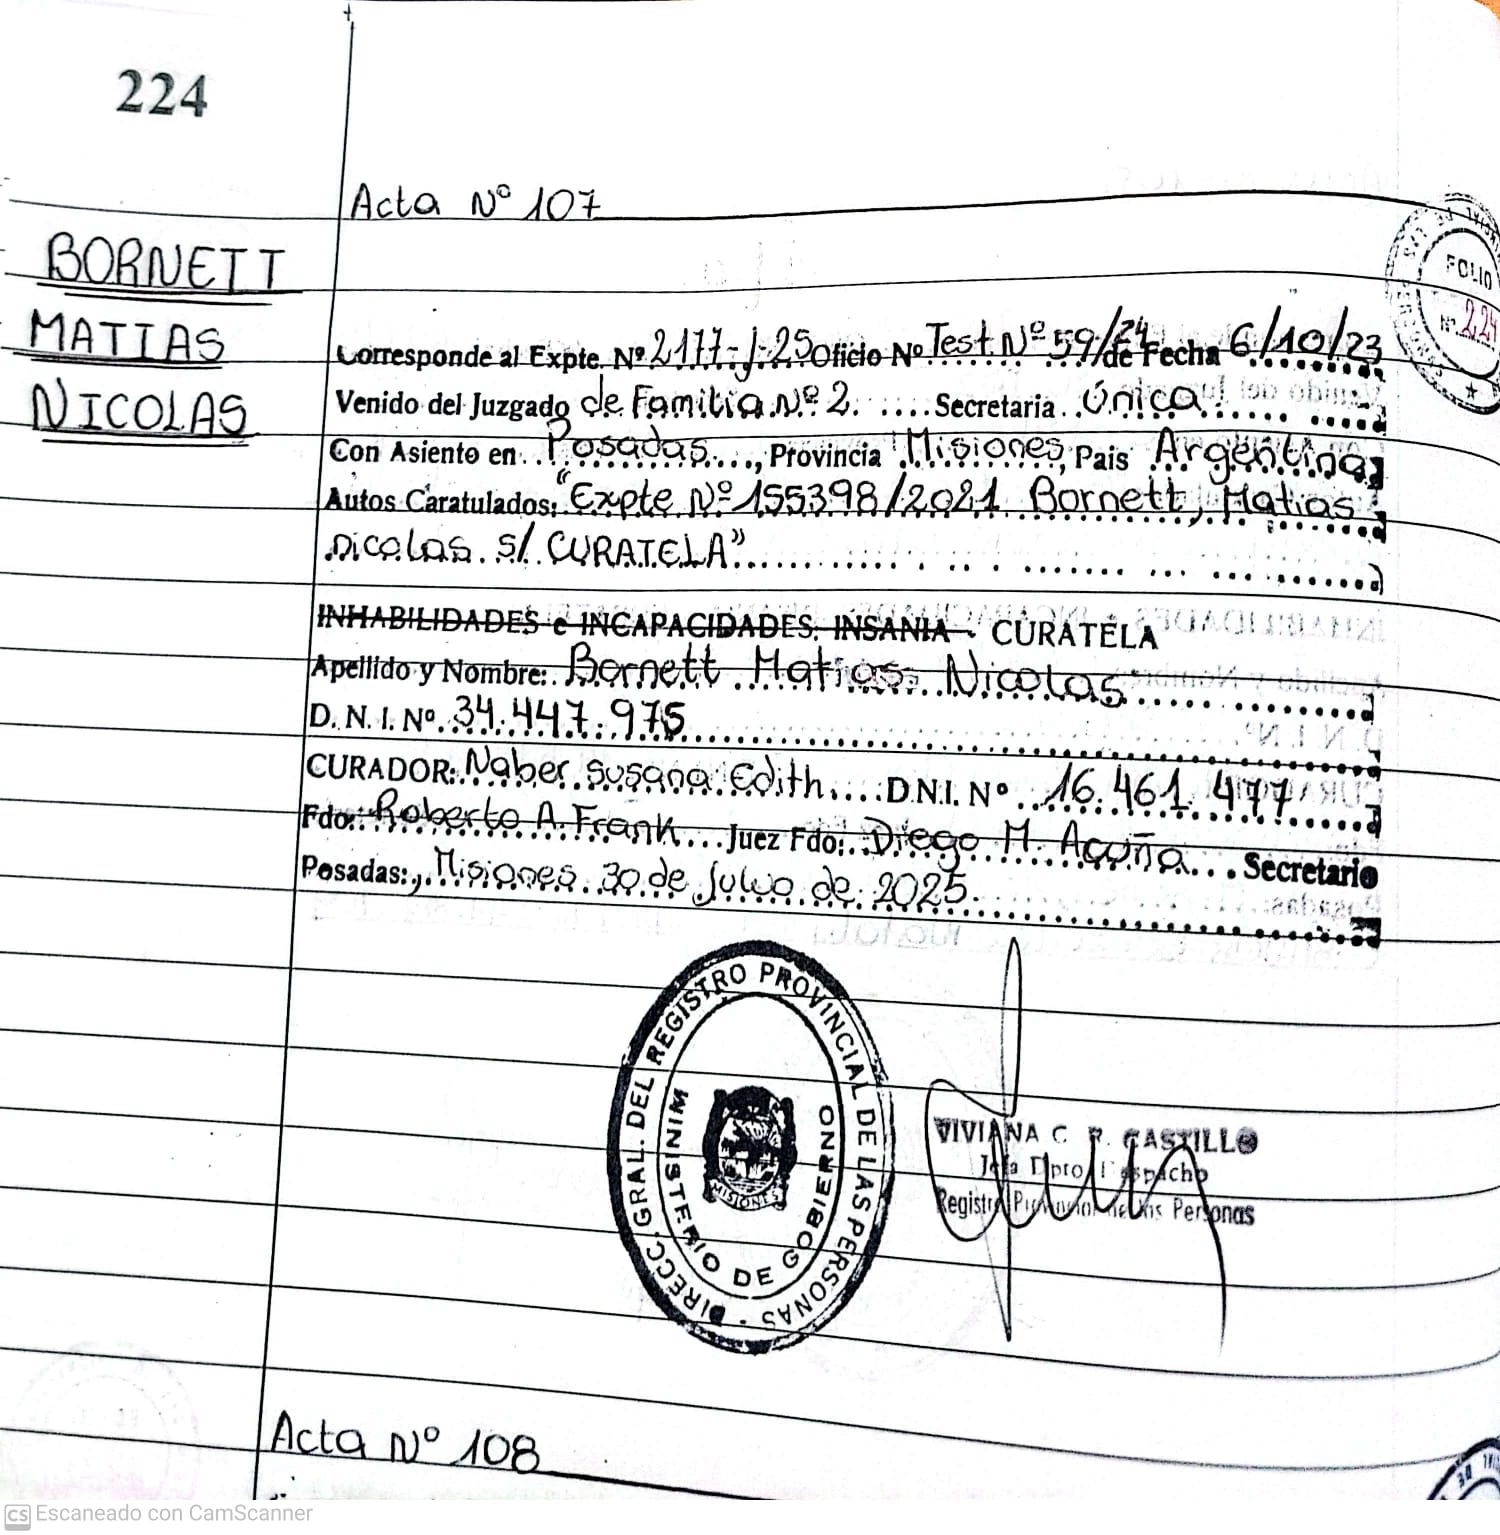 224
Acta Nº 107
BORNETT
MATIAS
NICOLAS
FOLIO
Nº 224
Corresponde al Expte. Nº 2177-J-25 Oficio Nº Test. Nº 59/24 de Fecha 6/10/23
Venido del Juzgado de Familia Nº 2. Secretaria Única
Con Asiento en Posadas, Provincia Misiones, Pais Argentina
Autos Caratulados: "Expte Nº 155398/2021 Bornett, Matias
nicolas s/ CURATELA"
INHABILIDADES e INCAPACIDADES: INSANIA - CURATELA
Apellido y Nombre: Bornett Matias Nicolas
D. N. I. Nº 34.447.975
CURADOR: Naber Susana Edith D.N.I. Nº 16.461.477
Fdo: Roberto A. Frank Juez Fdo: Diego M. Acuña Secretario
Posadas:, Misiones 30 de Julio de 2025.
DIRECC. GRAL. DEL REGISTRO PROVINCIAL DE LAS PERSONAS
MINISTERIO DE GOBIERNO
MISIONES
VIVIANA C. R. CASTILLO
Jefa Dpto. Despacho
Registro Provincial de las Personas
Acta Nº 108
CS Escaneado con CamScanner